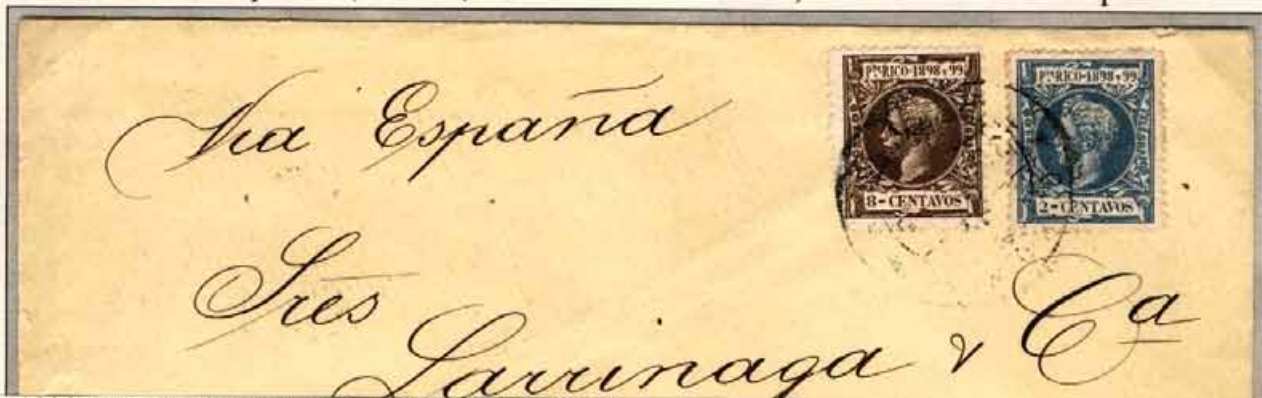 Via España
PTO RICO-1898 y 99
8-CENTAVOS
PTO RICO-1898 y 99
2-CENTAVOS
Sres
Larrinaga y Ca